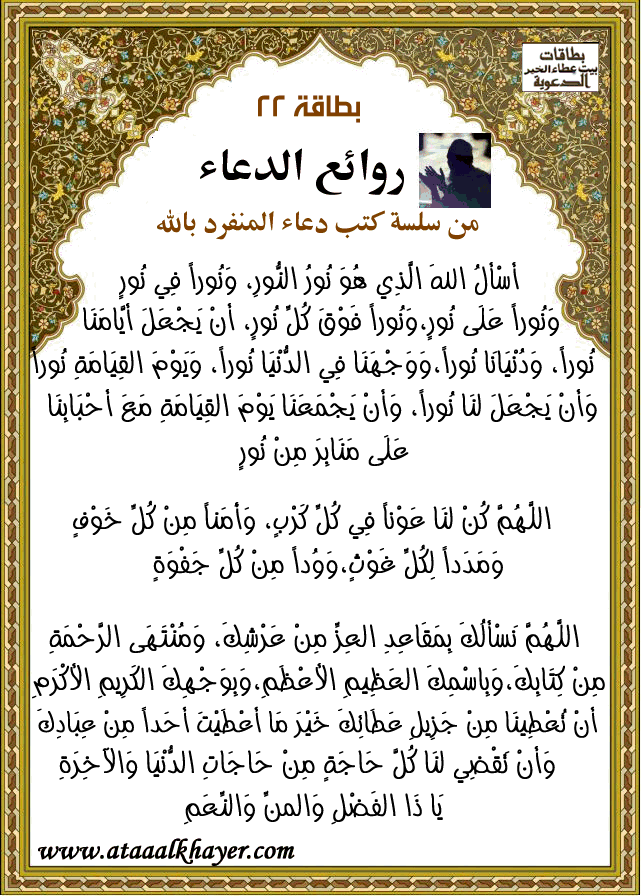 بطاقات
بيت عطاء الخير
الدعوية
بطاقة ٢٢
روائع الدعاء
من سلسة كتب دعاء المنفرد بالله
أَسْأَلُ اللهَ الَّذِي هُوَ نُورُ النُّورِ، وَنُوراً فِي نُورٍ
وَنُوراً عَلَى نُورٍ،وَنُوراً فَوْقَ كُلِّ نُورٍ، أَنْ يَجْعَلَ أَيَّامَنَا
نُوراً، وَدُنْيَانَا نُوراً،وَوَجْهَنَا فِي الدُّنْيَا نُوراً، وَيَوْمَ القِيَامَةِ نُوراً
وَأَنْ يَجْعَلَ لَنَا نُوراً، وَأَنْ يَجْمَعَنَا يَوْمَ القِيَامَةِ مَعَ أَحْبَابِنَا
عَلَى مَنَابِرَ مِنْ نُورٍ
اللَّهُمَّ كُنْ لَنَا عَوْناً فِي كُلِّ كَرْبٍ، وَأَمَناً مِنْ كُلِّ خَوْفٍ
وَمَدَداً لِكُلِّ غَوْثٍ،وَوُداً مِنْ كُلِّ جَفْوَةٍ
اللَّهُمَّ نَسْأَلُكَ بِمَقَاعِدِ العِزِّ مِنْ عَرْشِكَ، وَمُنْتَهَى الرَّحْمَةِ
مِنْ كِتَابِكَ،وَبِاسْمِكَ العَظِيمِ الأَعْظَمِ،وَبِوَجْهِكَ الكَرِيمِ الأَكْرَمِ
أَنْ تُعْطِينَا مِنْ جَزِيلِ عَطَائِكَ خَيْرَ مَا أَعْطَيْتَ أَحَداً مِنْ عِبَادِكَ
وَأَنْ تَقْضِي لَنَا كُلَّ حَاجَةٍ مِنْ حَاجَاتِ الدُّنْيَا وَالآخِرَةِ
يَا ذَا الفَضْلِ وَالمنِّ وَالنِّعَمِ
www.ataaalkhayer.com